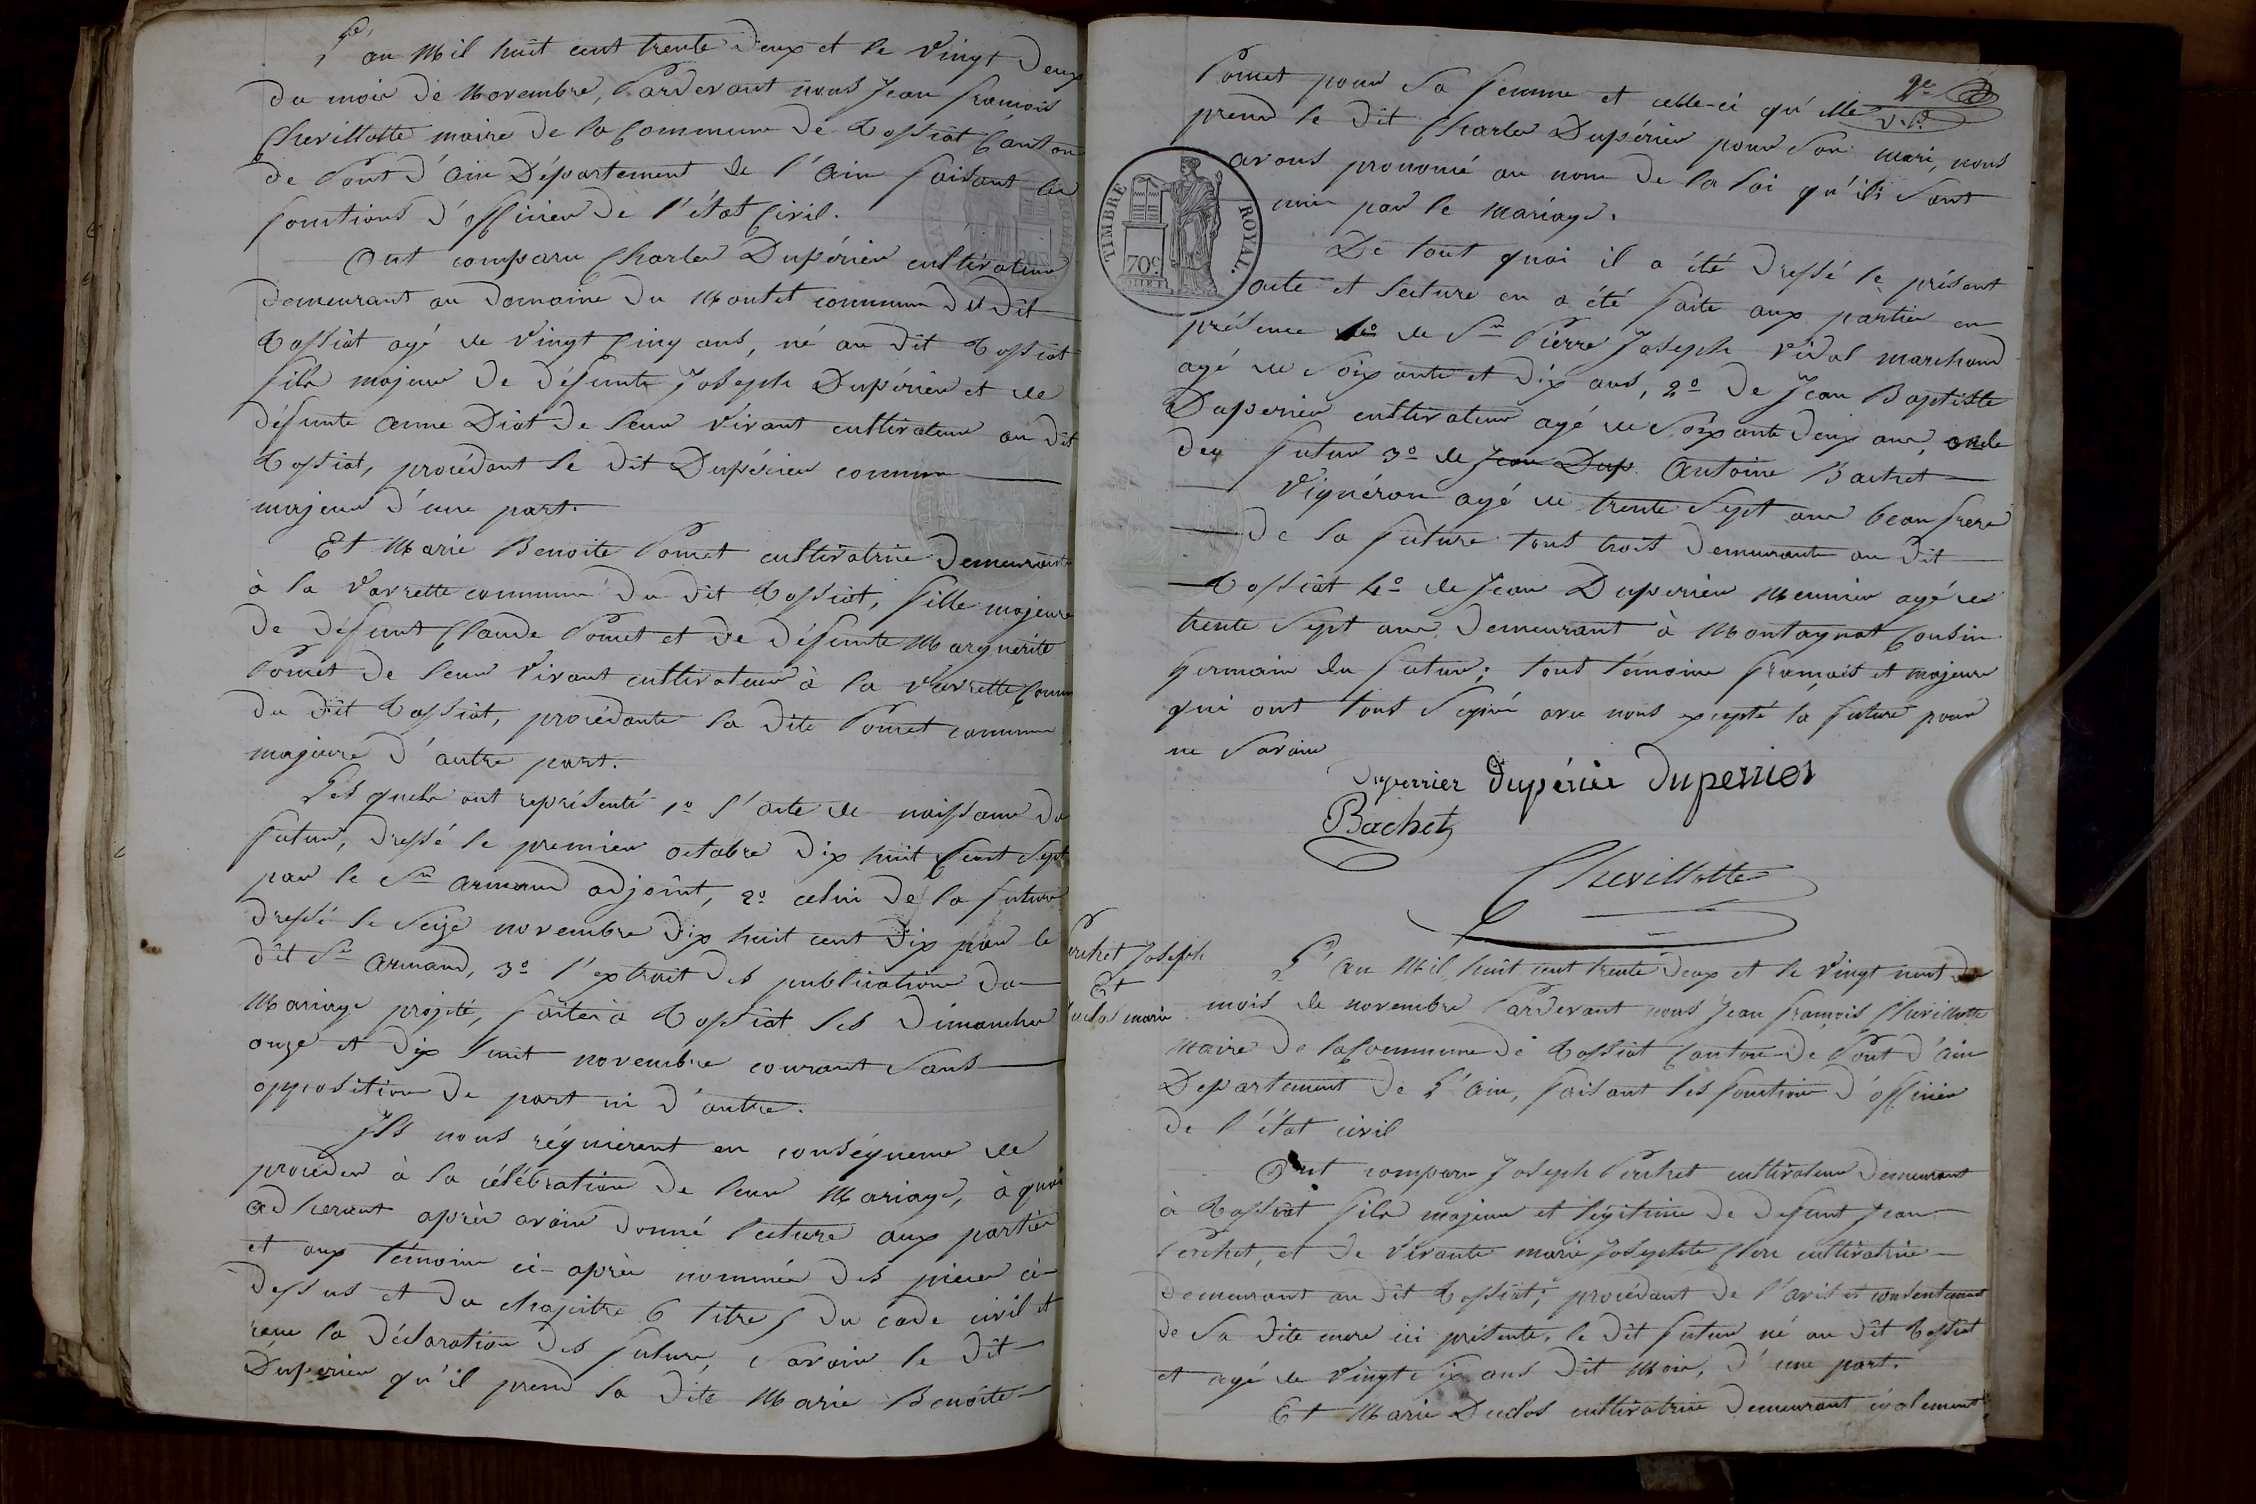 L'an Mil huit cent trente deux et le Vingt Deux
du mois de Novembre, Pardevant nous Jean françois
Chevillotte maire de la Commune de Tossiat Canton
de Pont d'Ain Département de l'Ain faisant les
fonctions d'officier de l'état Civil.
Ont comparu Charles Dupérier cultivateur
demeurant au domaine du Montet commune du dit
Tossiat agé de Vingt Cinq ans, né au dit Tossiat
fils majeur de défunte Joseph Dupérier et de
défunte anne Diat de leur vivant cultivateur au dit
Tossiat, procédant le dit Dupérier comme
majeur d'une part.
Et Marie Benoite Pomet cultivatrice demeurante
à la Varrette commune du dit Tossiat, fille majeure
de défunt Claude Pomet et de défunte Marguerite
Pomet de leur Vivant cultivateur à la Varrette Comm
du dit Tossiat, procédante la dite Pomet comme
majeure d'autre part.
Lesquels ont représenté 1º l'acte de naissance du
futur, dressé le premier octobre dix huit Cent Sept
par le Sr armand adjoint, 2º celui de la future
dressé le Seize novembre dix huit cent dix par le
dit Sr Armand, 3º l'extrait des publications du
Mariage projeté, faites à Tossiat les Dimanches
onze et dix huit novembre courant Sans
opposition de part ni d'autre.
Ils nous réquièrent en conséquence de
proceder à la célébration de leur Mariage, à quoi
adherant après avoir donné lecture aux parties
et aux témoins ci-après nommés des pièces ci-
dessus et du chapitre 6 titre 5 du code civil et
reçu la déclaration des futurs, Savoir le dit
Duperier qu'il prend la dite Marie Benoite
Pomet pour Sa femme et celle-ci qu'elle
prend le dit Charles Dupérier pour Son mari, nous
avons prononcé au nom de la loi qu'ils Sont
unis par le Mariage.
TIMBRE ROYAL.
70c
De tout quoi il a été dressé le présent
acte et lecture en a été faite aux parties en
présence 1º de Sr Pierre Joseph Vidal marchand
agé de Soixante et dix ans, 2º de Jean Baptiste
Duperier cultivateur agé de Soixante deux ans, oncle
du futur 3º de Jean Dup. Antoine Bachet
Vignéron agé de trente Sept ans beau frere
de la future tous trois demeurants au dit
Tossiat 4º de Jean Duperier Meunier agé de
trente Sept ans demeurant à Montagnat Cousin
germain du futur; tous témoins français et majeurs
qui ont tous Signé avec nous excepté la future pour
ne Savoir
Duperrier Dupérier Duperrier
Bachet
Chevillotte
Perchet Joseph
Et
Duclos marie
L'an Mil huit cent trente deux et le Vingt neuf du
mois de novembre Pardevant nous Jean françois Chevillotte
Maire de la Commune de Tossiat Canton de Pont d'ain
Departement de L'Ain, faisant les fonctions d'officier
de l'état civil
Ont comparu Joseph Perchet cultivateur demeurant
à Tossiat fils majeur et légitime de defunt Jean
Perchet, et de vivante marie Josephte Clerc cultivatrice
demeurant au dit Tossiat; procédant de l'avis et consentement
de Sa dite mere ici présente, le dit futur né au dit Tossiat
et agé de Vingt Six ans dit Mois, d'une part.
Et Marie Duclos cultivatrice demeurant également